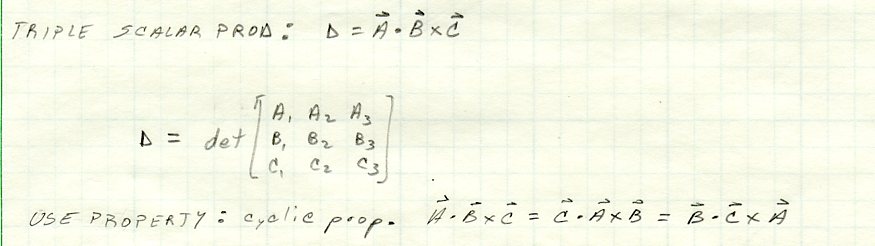 TRIPLE SCALAR PROD: D = A⃗ • B⃗ x C⃗
D = det [ A₁ A₂ A₃
B₁ B₂ B₃
C₁ C₂ C₃ ]
USE PROPERTY: cyclic prop. A⃗ • B⃗ x C⃗ = C⃗ • A⃗ x B⃗ = B⃗ • C⃗ x A⃗